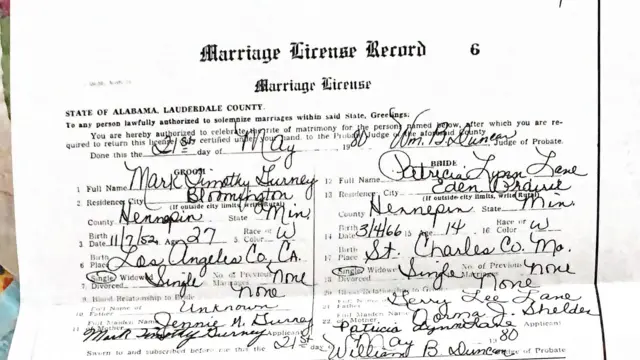 Marriage License Record 6
Marriage License
STATE OF ALABAMA, LAUDERDALE COUNTY.
To any person lawfully authorized to solemnize marriages within said State, Greetings:
You are hereby authorized to celebrate the rite of matrimony for the persons named below, after which you are re-
quired to return this license certified under your hand, to the Probate Judge of the aforesaid county
Done this the 21st day of May 1980 Wm. B. Duncan Judge of Probate.
GROOM
1 Full Name Mark Timothy Gurney
2. Residence City Bloomington
(If outside city limits, write Rural)
County Hennepin State Min
3 Birth Date 11/7/52 Age 27 5. Race or Color W
6 Birth Place Los Angeles Co, CA.
Single Widowed Divorced Single No. of Previous Marriages None
9. Blood Relationship to Bride None
Father Full Name Unknown
Full Maiden Name Mother Jennie N. Gurney
Mark Timothy Gurney Applicant
BRIDE
12 Full Name Patricia Lynn Lane
13 Residence City Eden Prairie
(If outside city limits, write Rural)
County Hennepin State Min.
14 Birth Date 3/4/66 15 Age 14 16 Race or Color W
17 Birth Place St. Charles Co. Mo.
Single Widowed Divorced Single No. of Previous Marriages None
Blood Relationship to Groom None
Father Full Name Terry Lee Lane
Full Maiden Name Mother Norma J. Shelden
Patricia Lynn Lane Applicant
Sworn to and subscribed before me this the 21st day May 1980
William B Duncan